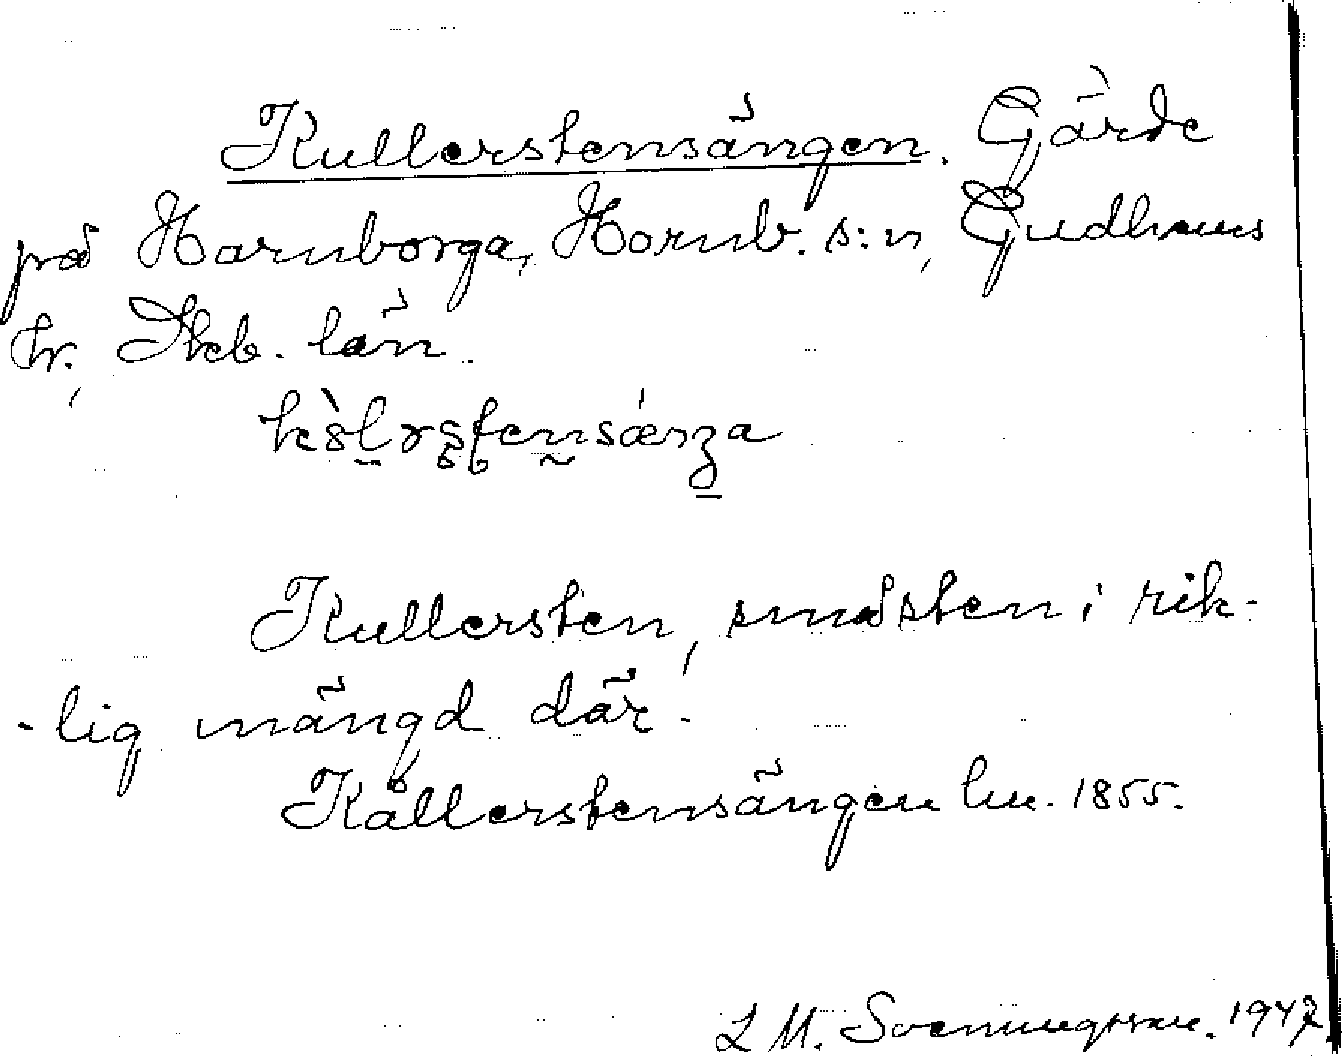 Kullerstensängen. Gärde
på Hornborga, Hornb. s:n, Gudhems
hr, Skb. län.
Kullersten, småsten i rik-
-lig mängd där.
Kållerstensängen lm. 1855.
L M. Svenningsson. 1947.